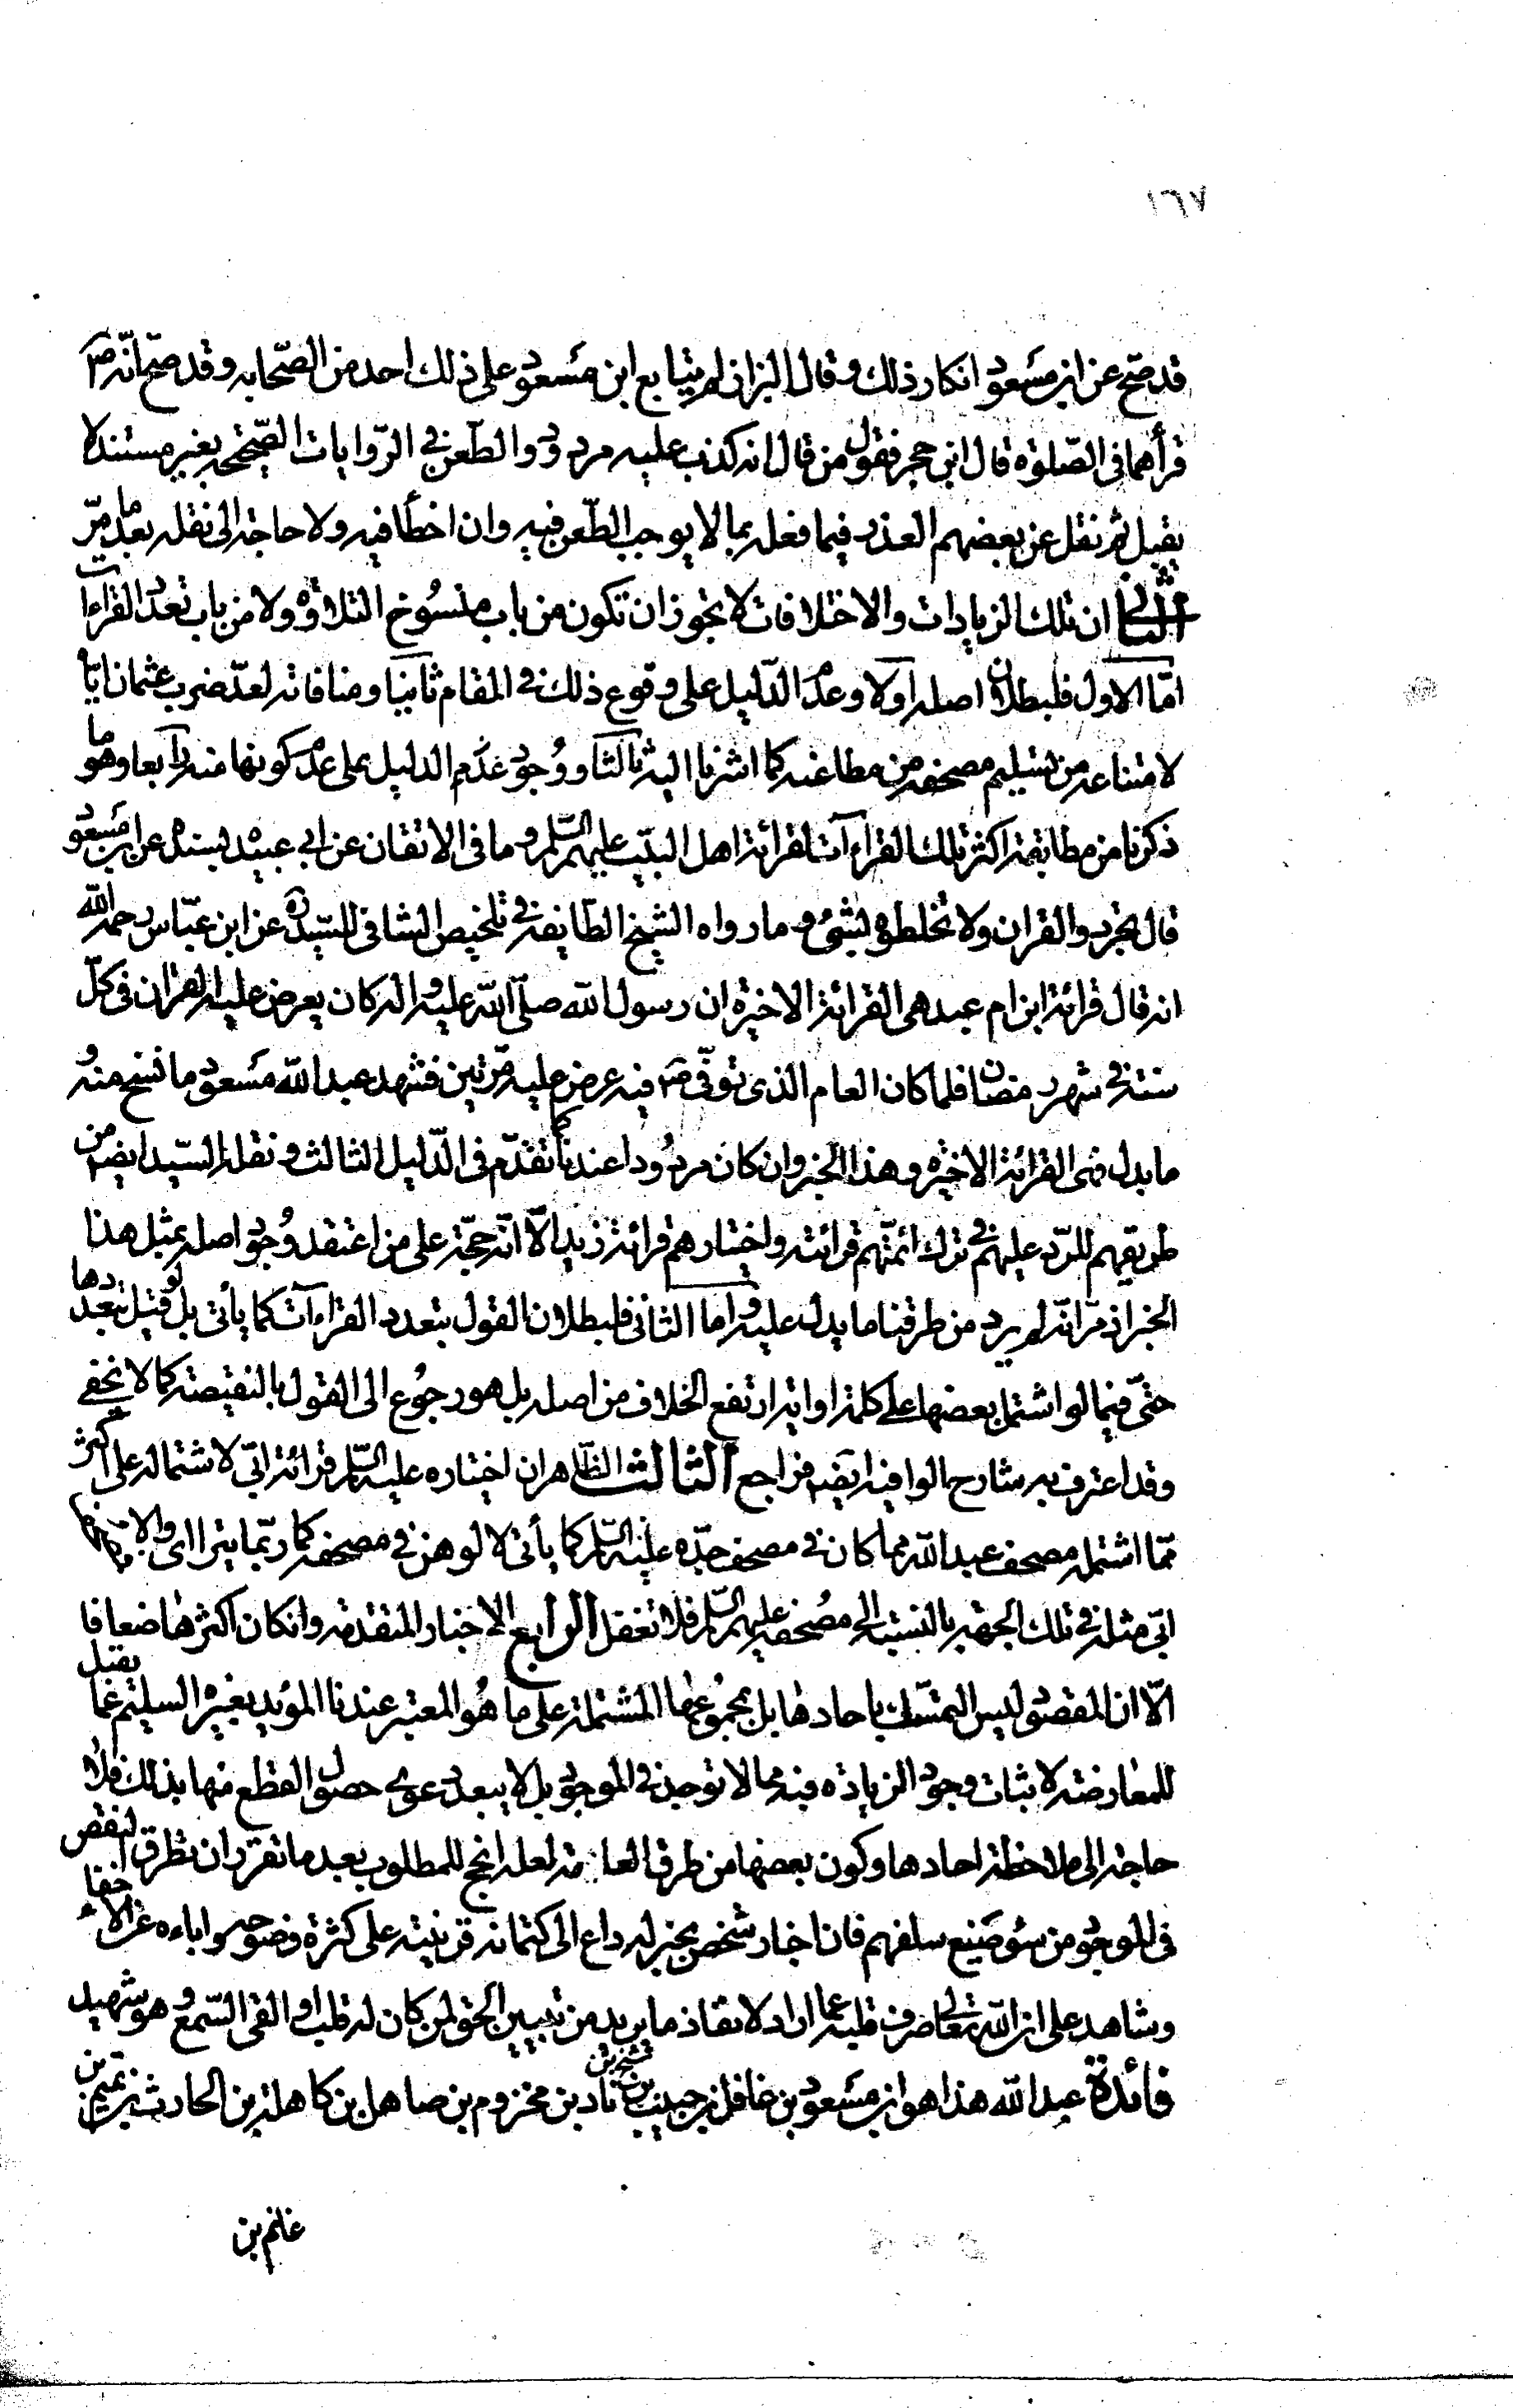 ١٦٧
قد صح عن ابن مسعود انكار ذلك وقال البزاز لم يتابع ابن مسعود على ذلك احد من الصحابه وقد صح انه ص
قرأهما فى الصلوة قال ابن حجر فقول من قال انه كذب عليه مردود والطعن فى الروايات الصحيحه بغير مستند لا
يقبل ثم نقل عن بعضهم العذر فيما فعله بما لا يوجب الطعن فيه وان اخطأ فيه ولا حاجة الى نقله بعد ما مرّ
الثانى ان تلك الزيادات والاختلافات لا تجوز ان تكون من باب منسوخ التلاوة ولا من باب تعدد القراءات
امّا الاول فلبطلان اصله اولا وعدم الدّليل على وقوع ذلك فى المقام ثانيا ومنافاته لعدّ ضرب عثمان ايّاه
لامتناعه من تسليم مصحفه من مطاعنه كما اشرنا اليه ثالثا ووجود عدم الدليل على عدم كونها منه رابعا وهو ما
ذكرنا من مطابقة اكثر تلك القراءات لقرائة اهل البيت عليهم السلم وما فى الاتقان عن ابى عبيد بسنده عن ابن مسعود
قال جردوا القران ولا تخلطوه بشئ وما رواه الشيخ الطايفة فى تلخيص الشافى للسيد ره عن ابن عباس رحمه الله
انه قال قرائة ابن ام عبد هى القرائة الاخيرة ان رسول الله صلّى الله عليه واله كان يعرض عليه القران فى كلّ
سنة فى شهر رمضان فلما كان العام الذى توفّى ص فيه عرض عليه مرّتين فشهد عبد الله مسعود ما نسخ منه و
ما بدل فهى القرائة الاخيرة وهذا الخبر وان كان مردودا عندنا كما تقدّم فى الدّليل الثالث ونقله السيّد ايضا من
طريقهم للردّ عليهم فى ترك ائمتهم قرائته واختيارهم قرائة زيد الّا انّه حجّة على من اعتقد وجود اصله بمثل هذا
الخبر اذ مرّ انّه لم يرد من طرقنا ما يدل عليه واما الثانى فلبطلان القول بتعدد القراءات كما يأتى بل لو قيل بتعددها
حتّى فيما لو اشتمل بعضها على كلمة او اية ارتفع الخلاف من اصله بل هو رجوع الى القول بالنقيصة كما لا يخفى
وقد اعترف به شارح الوافيه ايضا فراجع الثالث الظاهر ان اختياره عليه السلم قرائة ابىّ لاشتماله على اكثر
ممّا اشتمله مصحف عبد الله مما كان فى مصحف جدّه عليه السلم كما يأتى لا لوهن فى مصحفه كما ربّما يترااى والا
ابىّ مثله فى تلك الجهة بالنسبة الى مصحفه عليهم السلم فلا تغفل الرابع الاخبار المتقدمة وانكان اكثرها ضعافا
الّا ان المقصود ليس التمسّك باحادها بل بمجموعها المشتملة على ما هو المعتبر عندنا المؤيد بغيره السليم عما يقبل
للمعارضة لاثبات وجود الزيادة فيه مما لا توجد فى الموجود بل لا يبعد دعوى حصول القطع منها بذلك فلا
حاجة الى ملاحظة احادها وكون بعضها من طرق العامة لعله انجح للمطلوب بعد ما تقرر ان تطرق النقص
فى الموجود من سوء صنيع سلفهم فان اخبار شخص بخبر له داع الى كتمانه قرينة على كثرة وضوحه واباءه عن الاخفاء
وشاهد على ان الله تعالى صرف قلبه عما اراد لانفاذ ما يريد من تبيين الحق لمن كان له قلب او القى السّمع وهو شهيد
فائدة عبد الله هذا هو ابن مسعود بن غافل بن حبيب بن شمخ بن فاد بن مخزوم بن صاهل بن كاهلة بن الحارث بن تميم بن
غنم بن